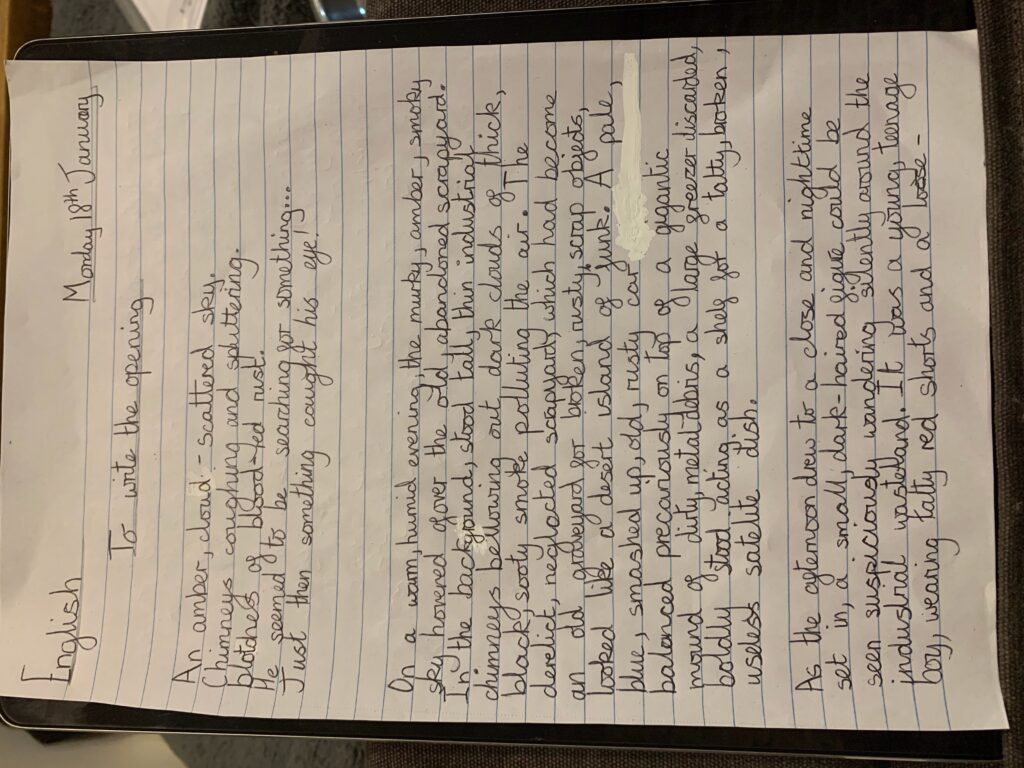 English
Monday 18th January
To write the opening
An amber, cloud-scattered sky.
Chimneys coughing and spluttering.
blotches of blood-red rust.
He seemed to be searching for something...
Just then something caught his eye!
On a warm, humid evening, the murky, amber, smoky
sky hovered over the old, abandoned scrapyard.
In the background, stood tall, thin industrial
chimneys bellowing out dark clouds of thick,
black, sooty smoke polluting the air. The
derelict, neglacted scrapyard, which had become
an old graveyard for broken, rusty, scrap objects,
looked like a desert island of junk. A pale,
blue, smashed up, old, rusty car
balanced precariously on top of a gigantic
mound of dirty, metal debris, a large freezer discarded,
boldly stood acting as a shelf for a tatty, broken,
useless satelite dish.
As the afternoon drew to a close and nightime
set in, a small, dark-haired figure could be
seen suspiciously wandering silently around the
industrial wasteland. It was a young, teenage
boy, wearing tatty red shorts and a loose-